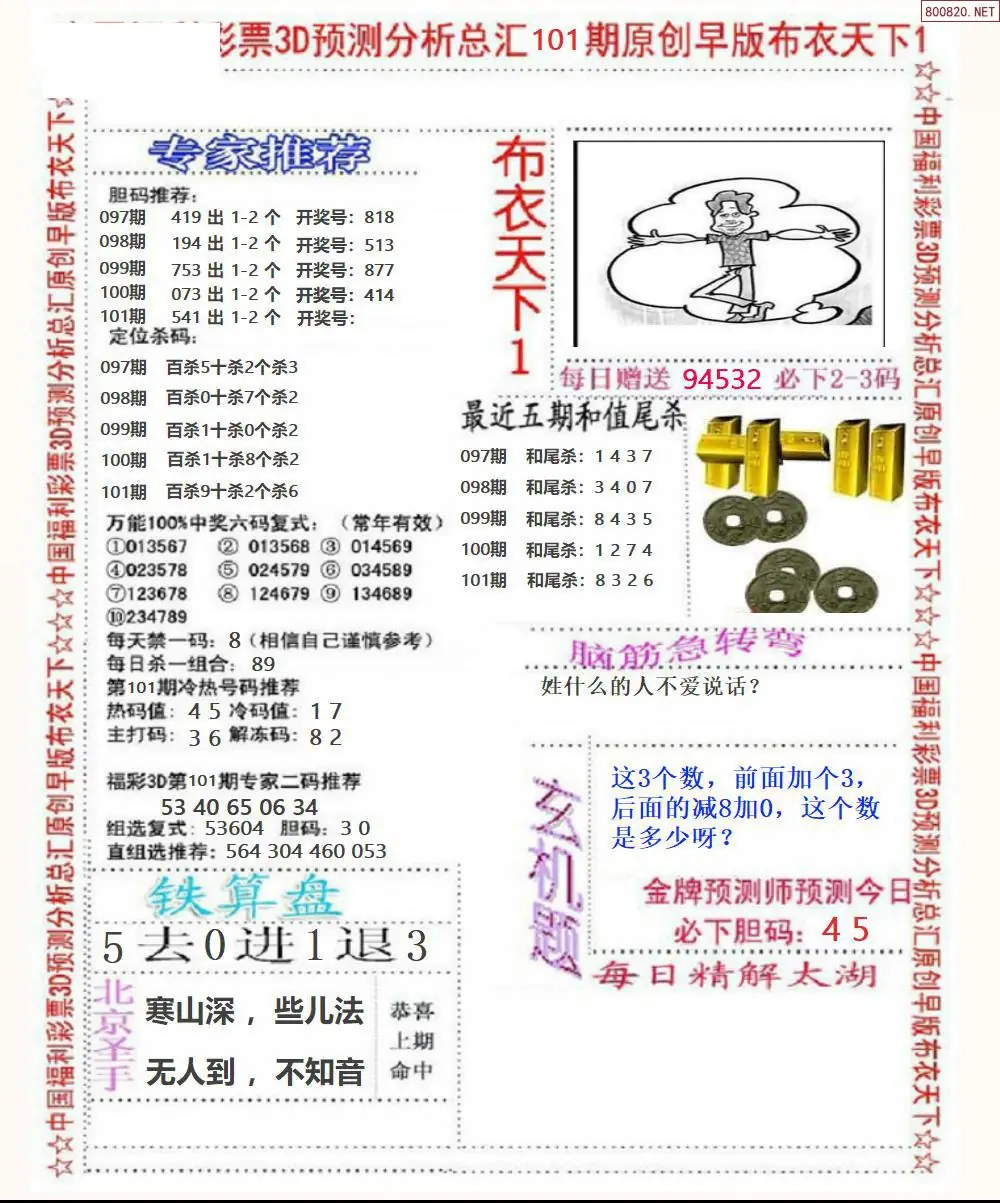 800820. NET
彩票3D预测分析总汇101期原创早版布衣天下1
☆☆中国福利彩票3D预测分析总汇原创早版布衣天下☆☆☆中国福利彩票3D预测分析总汇原创早版布衣天下☆
专家推荐
胆码推荐:
097期 419 出 1-2 个 开奖号: 818
098期 194 出 1-2 个 开奖号: 513
099期 753 出 1-2 个 开奖号: 877
100期 073 出 1-2 个 开奖号: 414
101期 541 出 1-2 个 开奖号:
定位杀码:
097期 百杀5十杀2个杀3
098期 百杀0十杀7个杀2
099期 百杀1十杀0个杀2
100期 百杀1十杀8个杀2
101期 百杀9十杀2个杀6
万能100%中奖六码复式: (常年有效)
①013567 ② 013568 ③ 014569
④023578 ⑤ 024579 ⑥ 034589
⑦123678 ⑧ 124679 ⑨ 134689
⑩234789
每天禁一码: 8 (相信自己谨慎参考)
每日杀一组合: 89
第101期冷热号码推荐
热码值: 4 5 冷码值: 1 7
主打码: 3 6 解冻码: 8 2
福彩3D第101期专家二码推荐
53 40 65 06 34
组选复式: 53604 胆码: 3 0
直组选推荐: 564 304 460 053
铁算盘
5去0进1退3
北京圣手
寒山深，些儿法
无人到，不知音
恭喜
上期
命中
布衣天下1
每日赠送 94532 必下2-3码
最近五期和值尾杀
097期 和尾杀: 1 4 3 7
098期 和尾杀: 3 4 0 7
099期 和尾杀: 8 4 3 5
100期 和尾杀: 1 2 7 4
101期 和尾杀: 8 3 2 6
脑筋急转弯
姓什么的人不爱说话?
玄机题
这3个数，前面加个3，
后面的减8加0，这个数
是多少呀?
金牌预测师预测今日
必下胆码: 4 5
每日精解太湖
☆☆中国福利彩票3D预测分析总汇原创早版布衣天下☆☆☆中国福利彩票3D预测分析总汇原创早版布衣天下☆☆